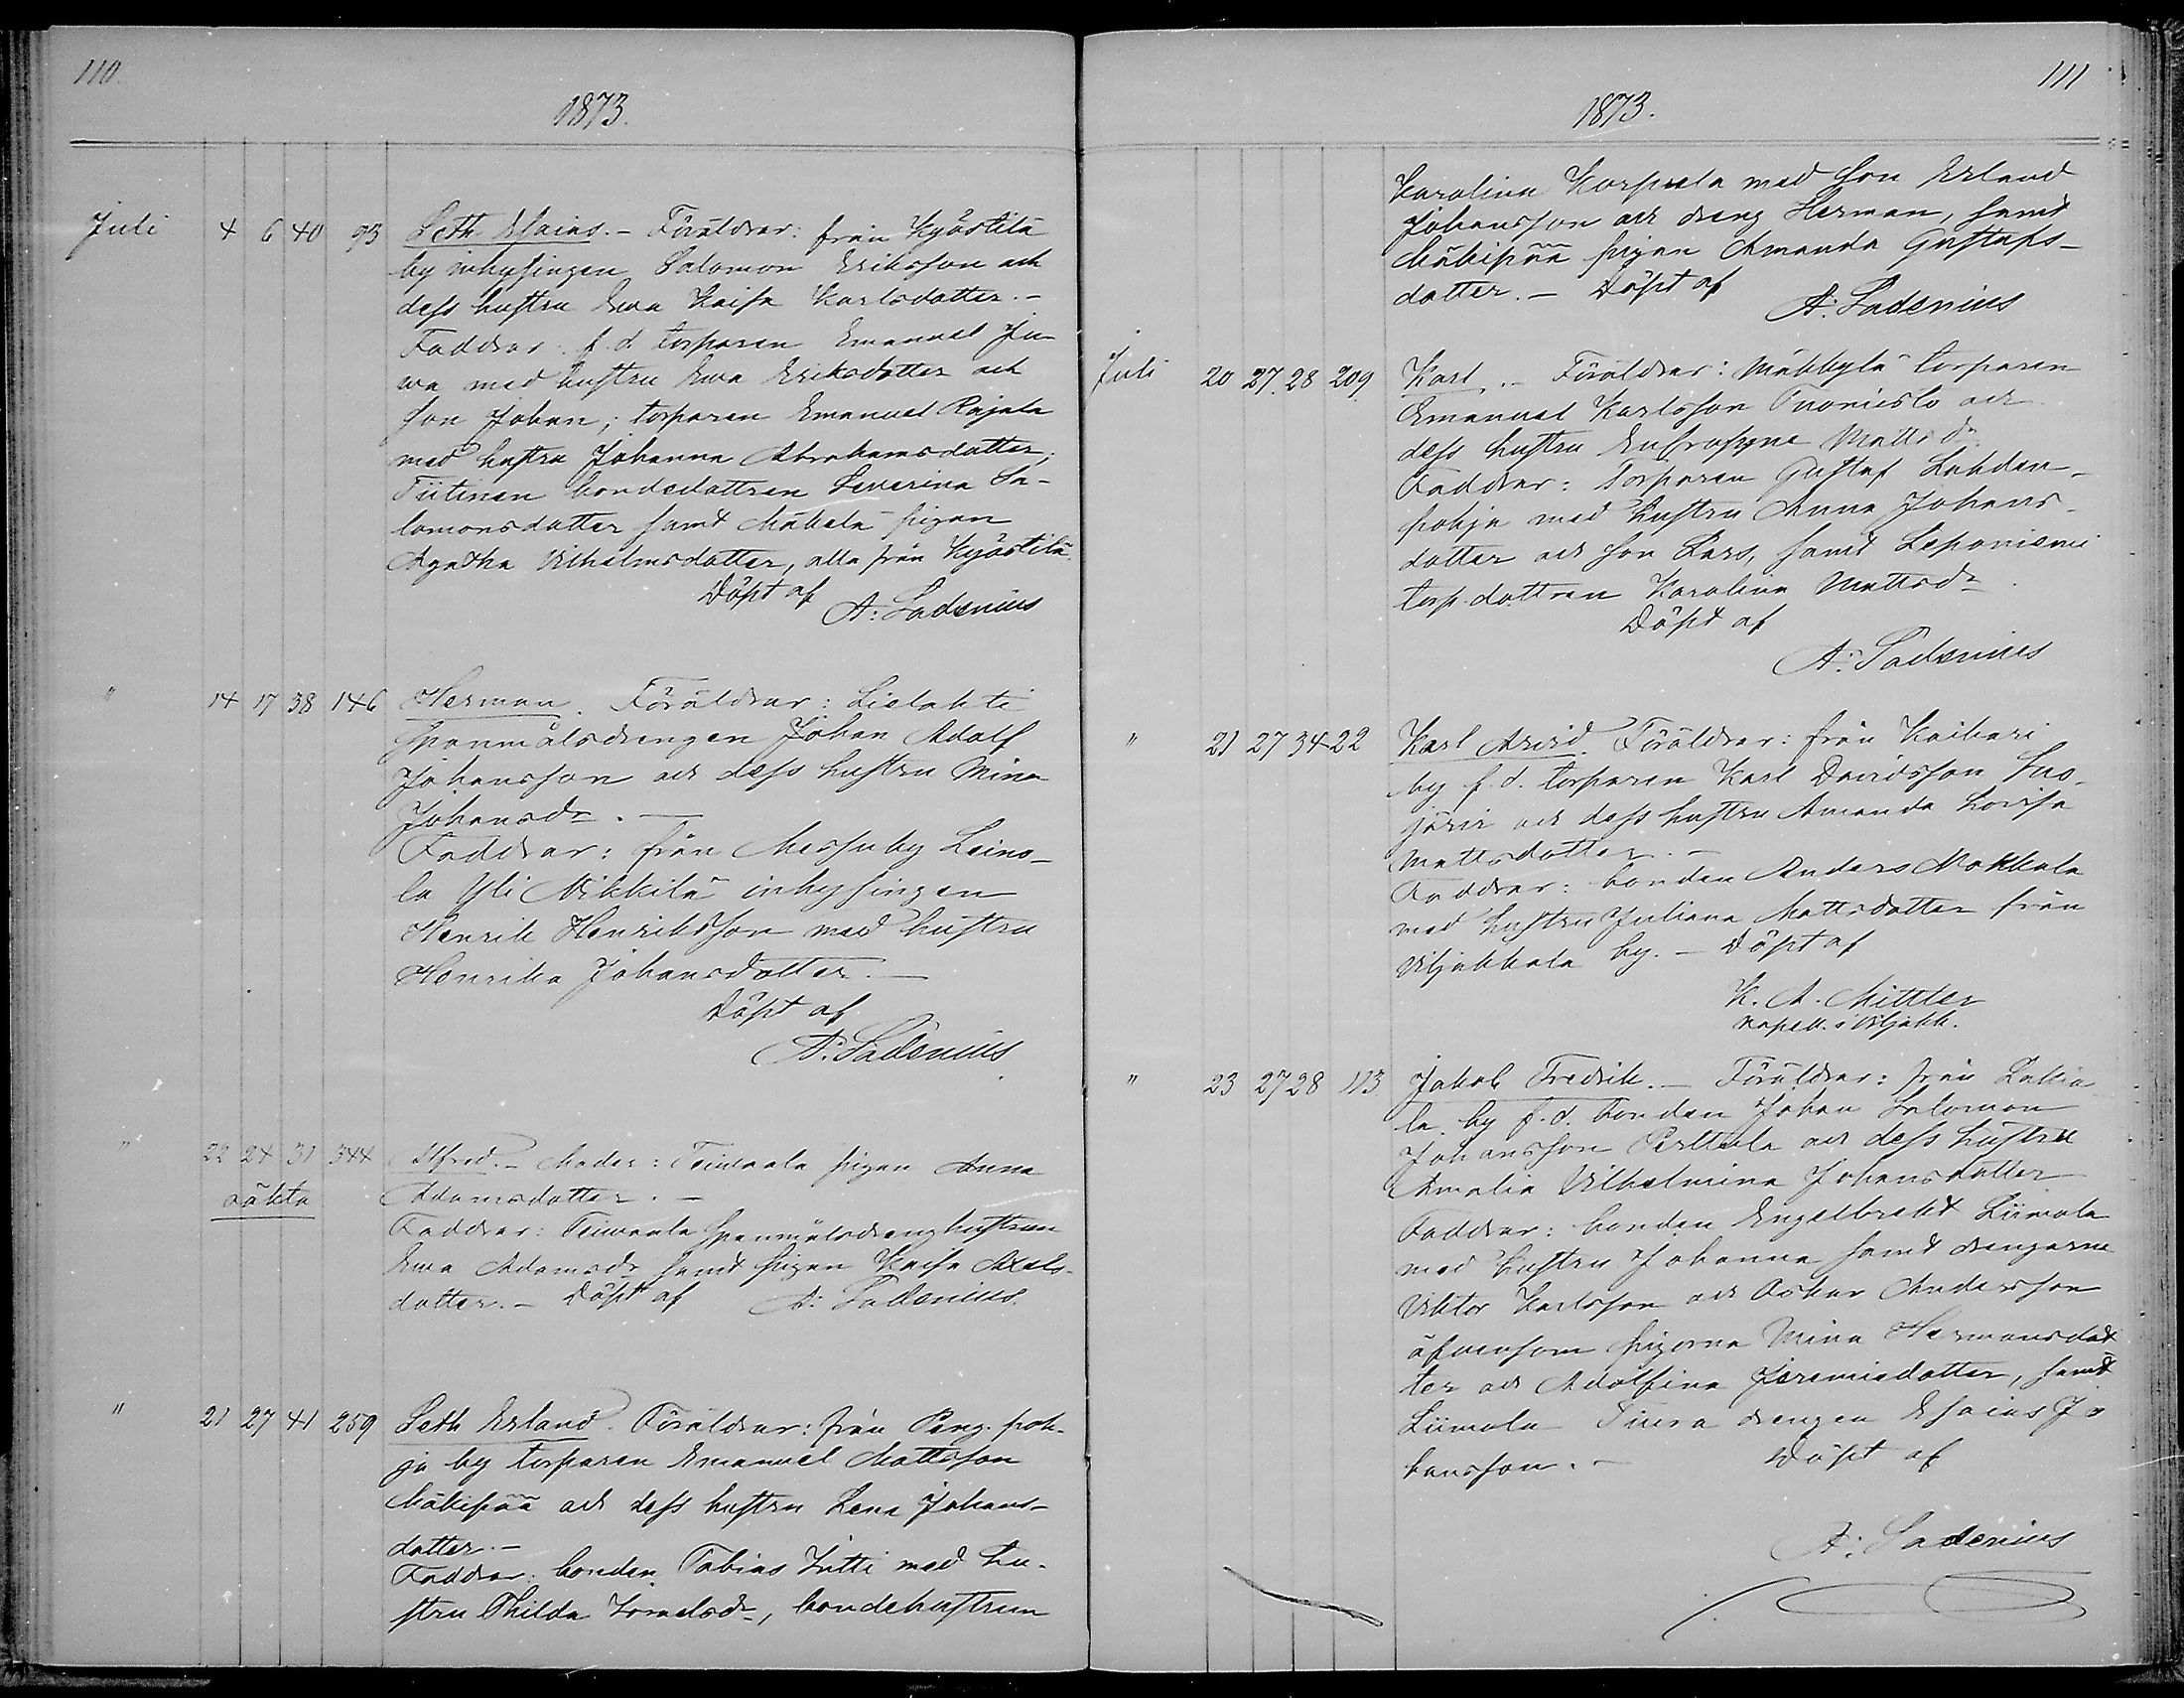 110.
1873.
Juli 4 6 40 93 Seth Esaias. - Föräldrar: från Kyöstilä
by inhysingen Salomon Eriksson och
dess hustru Ewa Kaisa Karlsdotter. -
Faddrar: f.d. torparen Emanuel Ju-
wa med hustru Ewa Eriksdotter och
son Johan; torparen Emanuel Rajala
med hustru Johanna Abrahamsdotter;
Tiitinen bondedottren Severina Sa-
lomonsdotter samt Mäkelä pigan
Agatha Vilhelmsdotter, alla från Kyöstilä.
Döpt af
A: Ladenius
" 14 17 38 146 Herman. Föräldrar: Lielahti
spanmålsdrengen Johan Adolf
Johansson och dess hustru Mina
Johansdr. -
Faddrar: från Messuby Leino-
la Yli Nikkilä inhysingen
Henrik Henriksson med hustru
Henrika Johansdotter. -
Döpt af
A: Ladenius
" 22 24 31 344 Alfred. - Moder: Teiwaala pigan Anna
oäkta Adamsdotter. -
Faddrar: Teiwaala spanmålsdrenghustrun
Ewa Adamsdr samt pigan Kaisa Axels-
dotter. - Döpt af A: Ladenius.
" 21 27 41 259 Seth Erland. Föräldrar: från Peng. poh-
ja by torparen Emanuel Mattsson
Mäkipää och dess hustru Lena Johans-
dotter. -
Faddrar: bonden Tobias Jutti med hu-
stru Thilda Israelsdr, bondehustrun
111
1873.
Karolina Korpula med son Erland
Johansson och dreng Herman, samt
Mäkipää pigan Amanda Gustafs-
dotter. - Döpt af
A: Ladenius
Juli 20 27. 28 209 Karl. - Föräldrar: Mäkkylä torparen
Emanuel Karlsson Tuomisto och
dess hustru Eufrosyne Mattsdr.
Faddrar: Torparen Gustaf Lahden-
pohja med hustru Anna Johans-
dotter och son Lars, samt Leponiemi
torp.dottren Karolina Mattsdr
Döpt af
A: Ladenius
" 21 27 34 22 Karl Arvid. Föräldrar: från Kaihari
by f.d. torparen Karl Davidsson Suo-
järvi och dess hustru Amanda Lovisa
Mattsdotter. -
Faddrar: bonden Anders Mokkala
med hustru Juliana Mattsdotter från
Viljakkala by. - Döpt af
K. A. Mittler
Kapell. i Viljakk.
" 23 27 28 113 Jakob Fredrik. - Föräldrar: från Lakia
la by f.d. bonden Johan Salomon
Johansson Perttula och dess hustru
Amalia Vilhelmina Johansdotter
Faddrar: bonden Engelbrekt Liimola
med hustru Johanna samt drengarne
Viktor Karlsson och Oskar Andersson
äfvensom pigorna Mina Hermansdot
ter och Adolfina Jeremiedotter, samt
Liimola Tiura drengen Esaias Jo
hansson. - Döpt af
A: Ladenius